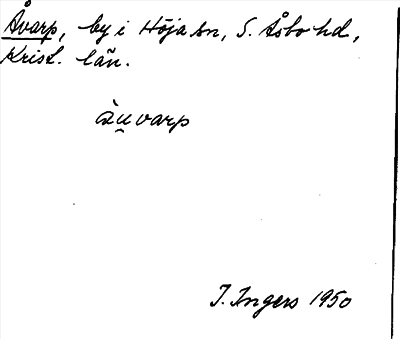 Åvarp, by i Höja sn, S. Åsbo hd,
Krist. län.
àu̯varp
I. Ingers 1950